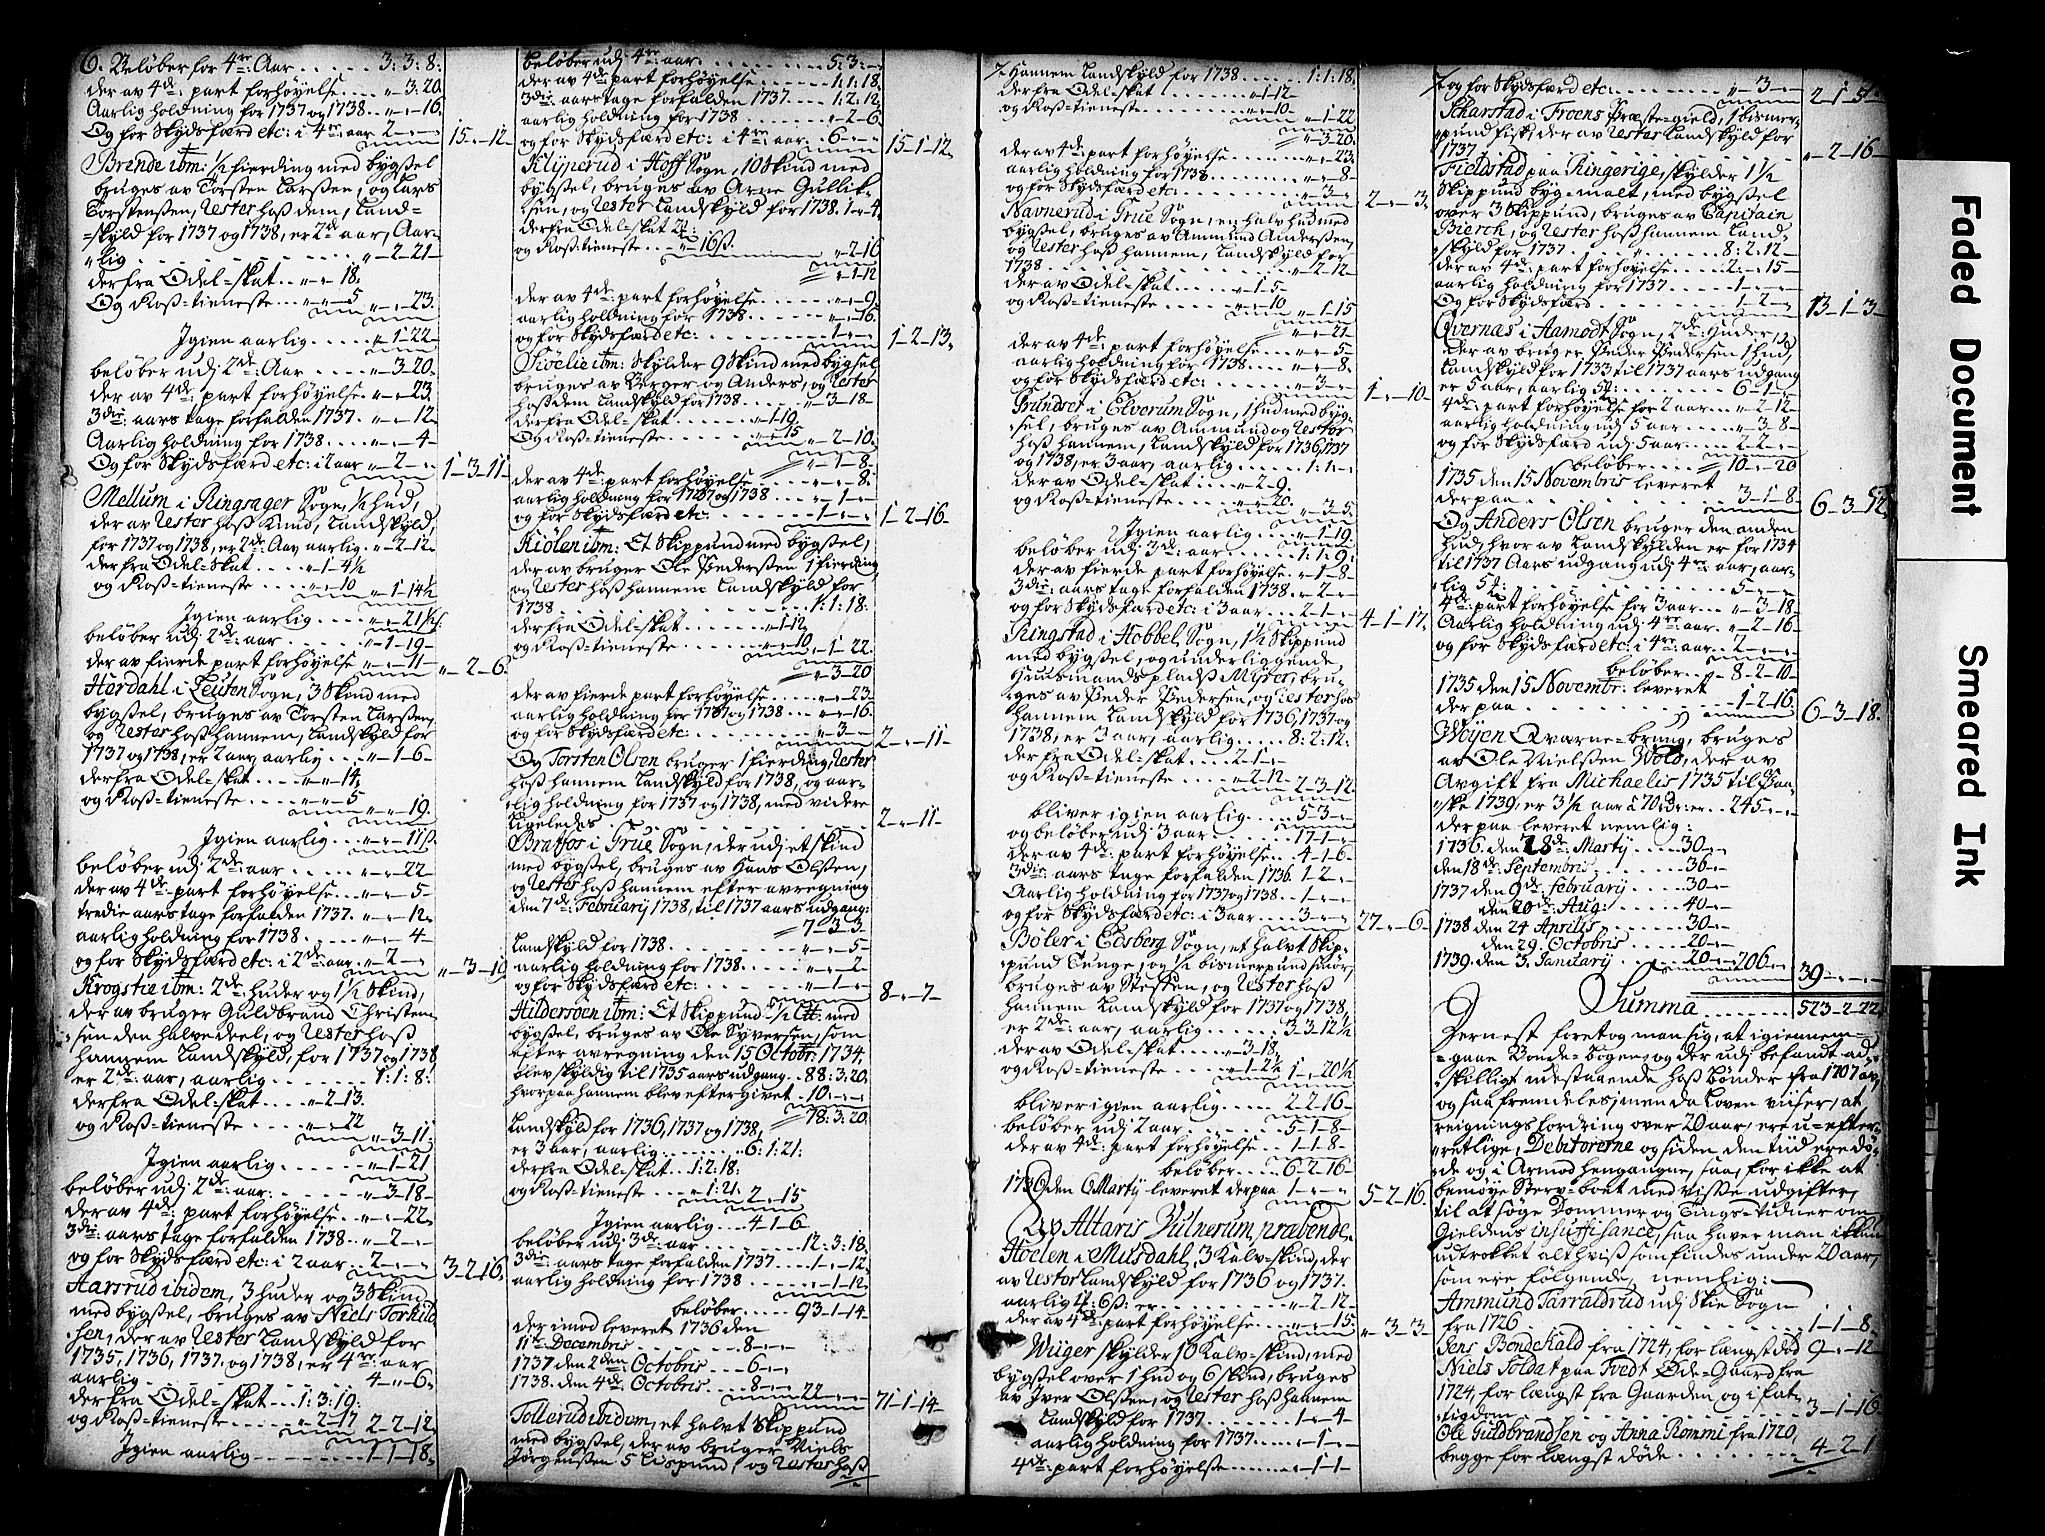 6. Beløber for 4re: Aar . . . . . 3: 3: 8:
der av 4de: part forhøyelse . . . . „ 3: 20.
Aarlig holdning for 1737 og 1738 . . „ - „ - 16.
Og for Skydsfærd etc: i 4re: aar 2 - „ - „ 15 - „ - 12.
Brende ibm: ½ fierding med bygsel
bruges av Torsten Larsen, og Lars
Torstensen, Rester hos dem, Land=
=skyld for 1737 og 1738, er 2de aar, Aar=
„lig . . . . . . . . . . „ - 2 - 21 -
derfra Odel=skat . . „ - „ - 18.
Og Ross=tieneste . . „ - „ - 5 „ - „ - 23.
Igien aarlig . . . . . „ - 1 - 22 -
beløber udj 2de: Aar . . . . „ - 3 - 20.
der av 4de: part forhøyelse „ - „ - 23.
3die: aars tage forfalden 1737. „ - „ - 12 -
Aarlig holdning for 1738 . . . . „ - „ - 4 -
Og for Skydsfærd etc: i 2 aar „ - 2 - „ 1 - 3 - 11 -
Mellum i Ringsager Sogn, ½ hud,
der av Rester hos Knud, Landskyld,
for 1737 og 1738, er 2de: Aar aarlig . „ - 2 - 12 -
derfra Odel=skat . . . „ - 1 - 4½
og Ross=tieneste . . . „ - „ - 10 „ - 1 - 14½
Igien aarlig . . . . „ - „ - 21½
beløber udj 2de: aar . . . . „ - 1 - 19 -
der av fierde part forhøyelse „ - „ - 11 - „ - 2 - 6.
Hørdahl i Leuten Sogn, 3 Skind med
bygsel, bruges av Torsten Larsen,
og Rester hos hannem, Landskyld for
1737 og 1738, er 2 aar, aarlig . . . „ - 1 - 6 -
derfra Odel=skat . . . „ - „ - 14,
og Ross=tieneste . . . . „ - „ - 5 „ - „ - 19.
Igien aarlig . . . . „ - „ - 11ß.
beløber udj 2de: aar . . . . . „ - „ - 22
der av 4de part forhøyelse . . . . „ - „ - 5
tredie aars tage forfalden 1737. „ - „ - 12.
aarlig holdning for 1738 . . . . . „ - „ - 4 -
og for Skydsfærd etc: i 2de: aar „ - 2 - „ „ - 3 - 19
Krogstie ibm: 2de: huder og 1½ Skind,
der av bruger Guldbrand Christen=
:sen den halve deel, og Rester hos
hannem Landskyld, for 1737 og 1738
er 2de: aar, aarlig . . . . . . 1: 1: 8:
derfra Odel=skat . . . . „ - 2 - 13.
og Ross=tieneste . . . . „ - „ - 22 „ - 3 - 11:
Igien aarlig . . . . . . „ - 1 - 21
beløber udj 2de: aar: . . . . . „ - 3 - 18 -
der av 4de: part forhøyelse . . „ - „ - 22.
3die: aars tage forfalden 1738 . . „ - 2 - „
og for Skydsfærd etc: i 2 aar 2 - „ - „ 3 - 2 - 16.
Aarsrud ibidem, 3 huder og 3 Skind
med bygsel, bruges av Niels Torkild=
:sen, der av Rester Landskyld for
1735, 1736, 1737. og 1738, er 4re: aar
aarlig . . . . . . . . . . . 4 - „ - 6.
derfra Odel=skat . . . 1: 3: 19:
og Ross=tieneste . . . . „ - 2 - 17 2 - 2 - 12.
Igien aarlig . . . . . . . 1 - 1 - 18.
beløber udj 4re: aar . . . . . . 5: 3: -
der av 4de: part forhøyelse . . . . 1: 1: 18.
3die: aars tage forfalden 1737 . . . 1: 2: 12.
aarlig holdning for 1738 . . . . . „ - 2 - 6.
og for Skydsfærd etc: i 4re: aar . 6 - „ - „ 15 - 1 - 12.
Klyperud i Hoff Sogn, 10 Skind med
bygsel, bruges av Arne Gullik=
:sen, og Rester Landskyld for 1738. 1 - „ - 4.
derfra Odel=skat 2
og Ross=tieneste . . . „ - 16ß. „ - 2 - 16
„ - 1 - 12
der av 4de: part forhøyelse . . . . . „ - „ - 9.
aarlig holdning for 1738 . . . . . . „ - „ - 16.
og for Skydsfærd etc: . . . . . . . 1 - „ - „ 1 - 2 - 13.
Skiøelie ibm: Skylder 9 Skind med bygsel
bruges av Børger og Anders, og Rester
hos dem Landskyld for 1738 . . . . „ - 3 - 18 -
derfra Odel=skat . . . . . „ - 1 - 19.
Og Ross=tieneste . . . . . „ - „ - 15 „ - 2 - 10.
„ - 1 - 8.
der av 4de: part forhøyelse . . . . . „ - „ - 8.
aarlig holdning for 1737 og 1738 . . . „ - 1 - „
og for Skydsfærd etc: . . . . . . 1 - „ - „ 1 - 2 - 16 -
Kiølen ibm: Et Skippund med bygsel,
der av bruger Ole Pedersen 1 fierding,
og Rester hos hannem Landskyld for
1738 . . . . . . . . . . . . 1: 1: 18:
derfra Odel=skat . . . . „ - 1 - 12
og Ross=tieneste . . . . . „ - „ - 10 „ - 1 - 22.
„ - 3 - 20
der av fierde part forhøyelse . . . . „ - „ - 23 -
aarlig holdning for 1737 og 1738 . . . „ - „ - 16.
og for Skydsfærd etc: . . . . . . . „ - 3 - „ 2 - „ - 11 -
Og Torsten Olsen bruger 1 fierding, Rester
hos hannem Landskyld for 1738, og aar=
:lig holdning for 1737 og 1738, med videre
Ligeledes . . . . . . . . . . . 2 - „ - 11 -
Bratfos i Grue Sogn, der udj et Skind
med bygsel, bruges av Hans Olsen,
og Rester hos hannem efter avregning
den 7de: Februarij 1738, til 1737 aars udgang:
7 - 3 - 3
Landskyld for 1738 . . . . . . . . . „ - „ - 5 -
aarlig holdning for 1738 . . . . . . „ - „ - 2 -
og for Skydsfærd etc: . . . . . . . „ - 1 - „ 8 - „ - 7 -
Hildersøen ibm: Et Skippund ½ med
bygsel, bruges av Ole Syversen, som
efter avregning den 15 Octobr: 1734.
blev skyldig til 1735 aars udgang . 88: 3: 20.
hvorpaa hannem blev eftergivet . 10. - „ - „
78: 3: 20.
Landskyld for 1736, 1737 og 1738,
er 3 aar, aarlig . . . . . . 6: 1: 21:
derfra Odel=skat . . 1: 2: 18:
og Ross=tieneste . . . „ - 1: 21: 2 - „ - 15
Igien aarlig . . . . 4 - 1 - 6
beløber udj 3de: aar . . . . . . . 12: 3: 18.
3die: aars tage forfalden 1737 . . . „ - 1 - 12.
aarlig holdning for 1738 . . . . . „ - 1 - 12.
beløber . . . . . 93 - 1 - 14 -
der imod leveret 1736 den
11te Decembris . . . . . . . 8 - „ - „
1737 den 2den Octobris . . . 6 - „ - „
1738. den 4de: Octobris . . . 8 - „ - „ 22 - „ - „ 71 - 1 - 14 -
Tollerud ibidem, et halvt Skippund
med bygsel, der av bruger Niels
Jørgensen 5 Lispund, og Rester hos
7. Hannem Landskyld for 1738 . . . . . 1: 1: 18.
derfra Odel=skat . . . . . . „ - 1 - 12
og Ross=tieneste . . . . . . „ - „ - 10 „ - 1 - 22
„ - 3 - 20.
der av 4de: part forhøyelse . . . . . „ - „ - 23.
aarlig holdning for 1738 . . . . . . „ - „ - 8 -
og for Skydsfærd etc: . . . . . . . „ - 3 - „ 2 - „ - 3.
Navnerud i Grue Sogn, en halv hud med
bygsel, bruges av Ammund Andersen,
og Rester hos hannem, Landskyld for
1738 . . . . . . . . . . . „ - 2 - 12 -
der av Odel=skat . . . . . „ - 1 - 5 -
og Ross=tieneste . . . . . „ - „ - 10 „ - 1 - 15
„ - „ - 21 -
der av 4de: part forhøyelse . . . . . „ - „ - 5 -
aarlig holdning for 1738 . . . . . . „ - „ - 8.
og for Skydsfærd etc: . . . . . . . „ - 3 - „ 1 - „ - 10 -
Grundset i Elverum Sogn, 1 hud med byg=
:sel, bruges av Ammund og Rester
hos hannem, Landskyld for 1736, 1737
og 1738, er 3 aar, aarlig . . . . . 1: 1: - :
der av Odel=skat . . . . . „ - 2 - 9.
og Ross=tieneste . . . . . „ - „ - 20. „ - 3 - 5.
Igien aarlig . . . . „ - 1 - 19.
beløber udj 3de: aar . . . . . . . 1: 1: 9:
der av fierde part forhøyelse . . „ - 1 - 8 -
3die: aars tage forfalden 1738 . . „ - 2 - „
og for Skydsfærd etc: i 3 aar . . . . 2 - 1 - „ 4 - 1 - 17.
Ringstad i Hobbel Sogn, 1½ Skippund
med bygsel, og underliggende
Huusmands plads Myrer, bru=
:ges av Peder Pedersen, og Rester hos
hannem Landskyld for 1736, 1737 og
1738, er 3 aar, aarlig . . . . . 8: 2: 12:
derfra Odel=skat . . . . 2 - 1 - „
og Ross=tieneste . . . . „ - 2 - 12 - 2 - 3 - 12.
bliver igien aarlig . . . . . 5 - 3 - „
og beløber udj 3 aar . . . . . . . 17 - 1 - „
der av 4de: part forhøyelse . . . 4 - 1 - 6 -
3die: aars tage forfalden 1736. 1 - 2 - „
Aarlig holdning for 1737 og 1738 . . „ - 1 - „
og for Skydsfærd etc: i 3 aar . . . . 3 - „ - „ 27 - „ - 6 -
Bøler i Edsberg Sogn, et halvt Skip=
:pund Tunge, og ½ bismerpund smør,
bruges av Stesten, og Rester hos
hannem Landskyld for 1737 og 1738,
er 2de: aar, aarlig . . . . . . 3 - 3 - 12½
der av Odel=skat . . . . „ - 3 - 18.
og Ross=tieneste . . . . . „ - 1 - 2½ 1 - „ - 20½
bliver igien aarlig . . . . . 2 - 2 - 16 -
beløber udj 2 aar . . . . . . . 5 - 1 - 8 -
der av 4de: part forhøyelse . . . 1 - 1 - 8.
beløber . . . . . 6 - 2 - 16 -
1736 den 6 Martij leveret derpaa 1 - „ - „ 5 - 2 - 16.
Av Altaris Vulnerum, præbende.
Hoelen i Mursdahl, 3 Kalv=skind, der
av Rester Landskyld for 1736 og 1737.
aarlig 1 6ß: er . . . . . . . . . „ - 2 - 12 -
der av 4de: part forhøyelse . . . . „ - „ - 15. „ - 3 - 3.
Wüger skylder 10 Kalv=skind, med
bygsel over 1 hud og 6 skind, bruges
av Iver Olsen, og Rester hos hannem
Landskyld for 1737 . . . . . . . . 1 - „ - 4 -
aarlig holdning for 1737 . . . . . „ - 1 - „
4de: part forhøyelse . . . . . . . „ - 1 - 1 -
7. og for Skydsfærd etc: . . . . . . . . „ - 3 - „ 2 - 1 - 5.
Skarstad i Froens Præste=gield, 1 bismer=
:pund fisk, der av Rester Landskyld for
1737 . . . . . . . . . . . . . . „ - 2 - 16 -
Fieldstad paa Ringerige, skylder 1½
Skippund byg=malt, med bygsel
over 3 Skippund, bruges av Capitain
Bierch, og Rester hos hannem Land=
:skyld for 1737 . . . . . „ . . . . . 8: 2: 12 -
der av 4de: part forhøyelse . . . . 2: - „ - 15 -
aarlig holdning for 1737 . . . . . 1 - „ - „
Og for Skydsfærd . . . . . . . . . 1 - 2 - „ 13 - 1 - 3 -
Qvernæs i Aamodt Sogn, 2de: Huder,
der av bruger Peder Pedersen 1 hud,
Landskyld for 1733 til 1737 aars udgang
er 5 aar, aarlig 5 . . . . . . . . 6 - 1 - „
4de: part forhøyelse for 2 aar . . . „ - 2 - 12 -
aarlig holdning udj 5 aar . . . . . „ - 3 - 8 -
og for Skydsfærd udj 5 aar . . . . . 2 - 2 - „
beløber . . . . 10 - „ - 20
1735 den 15 Novembris leveret
derpaa . . . . . . . . . . . . 3 - 1 - 8. 6 - 3 - 12.
Og Anders Olsen bruger den anden
hud, hvor av Landskylden er for 1734
til 1737 Aars udgang udj 4re: aar, aar=
:lig 5 . . . . . . . . . . . . . 5 - „ - „
4de: part forhøyelse for 3 aar . . . „ - 3 - 18 -
Aarlig holdning udj 4re: aar . „ - 2 - 16 -
og for Skydsfærd etc: i 4re: aar . . 2 - „ - „
beløber . . . 8 - 2 - 10 -
1735 den 15 Novembr: leveret
derpaa . . . . . . . . . . . 1 - 2 - 16. 6 - 3 - 18.
Woyen Qværne=brug, bruges
av Ole Nielsen Wold, der av
Avgift fra Michaelis 1735 til Paa=
:ske 1739, er 3½ aar à 70 rdr: er . . 245 - „ - „
derpaa leveret nemlig:
1736. den 28de: Martij . . . . . 30 - „ - „
den 18de: Septembris . . . . . . 36 -
1737 den 9de: februarij . . . . . 30 - „ -
den 20de: Aug: . . . . . 40 - „
1738 den 24 Aprilis . . . . . . 30 - „ -
den 29. Octobris . . . . . 20 - „ -
1739. den 3. Januarij . . . . . 20 - „ - 206 - „ 39 - „ - „
Summa . . . . . . 573 - 2 - 22.
Dernest foretog man sig, at igiennem=
=gaae Bonde=bogen, og der udj befandt ad=
:skilligt udestaaende hos bønder fra 1707 av,
og saa fremdeles; men da Loven viiser, at
reignings fordring over 20 aar, ere u=efter=
:retlige, Debitorerne og siden den tiid ere dø=
:de og i Armod hengangne, saa, for ikke at
bemøye Sterv=boet med visse udgifter,
til at søge Dommer og Tings=vidner om
Gieldens insuffisance, saa haver man ikkun
udtrokket alt hvis som findes under 20 aar,
som ere følgende, nemlig:
Ammund Tarraldrud udj Skie Sogn
fra 1726 . . . . . . . . . . . . . 1 - 1 - 8.
Jens Bonde Kald fra 1724, for længst død 9 - „ - 12 -
Niels Soldat paa Tvedt Øde=Gaard fra
1724, for længst fra Gaarden og i fat=
:tigdom . . . . . . . . . . . . . 3 - 1 - 16
Ole Guldbrandsen og Anna Rommi fra 1720,
begge for Længst døde . . . . . . 4 - 2 - 1
Faded Document
Smeared Ink